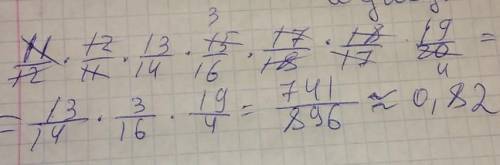 3
11/12 · 12/11 · 13/14 · 15/16 · 17/18 · 18/17 · 19/20 =
4
= 13/14 · 3/16 · 19/4 = 741/896 ≈ 0,82